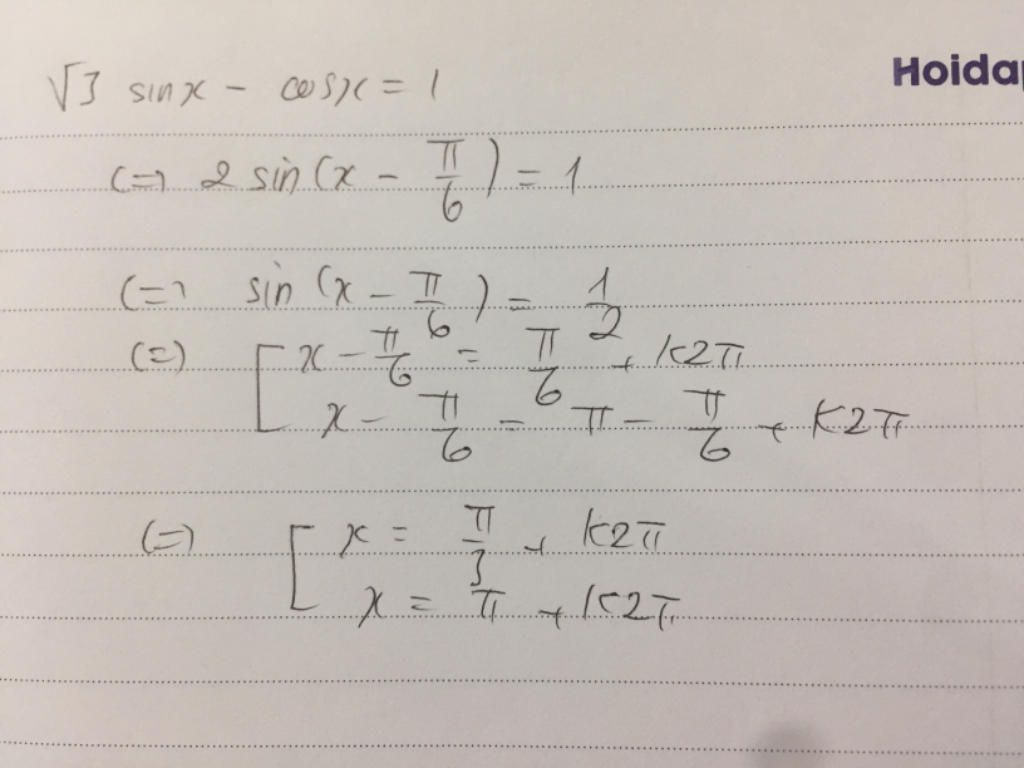 Hoidap
√3 sinx - cosx = 1
(=) 2 sin(x - π/6) = 1
(=) sin(x - π/6) = 1/2
(=) [ x - π/6 = π/6 + k2π
x - π/6 = π - π/6 + k2π
(=) [ x = π/3 + k2π
x = π + k2π